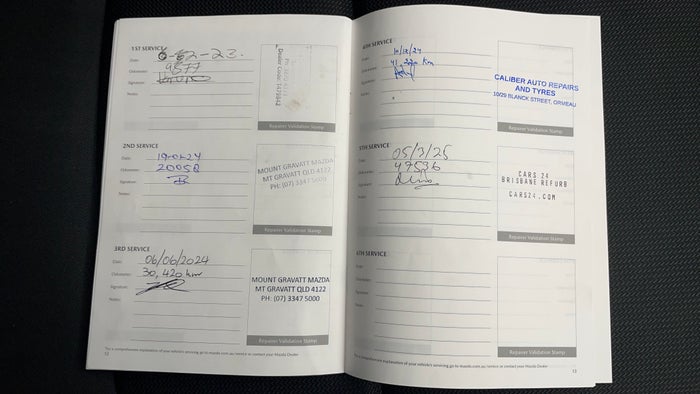 1ST SERVICE
Date: -02-23.
Odometer: 9577
Signature:
Notes:
Dealer Code: 
Repairer Validation Stamp
2ND SERVICE
Date: 19-01-24
Odometer:
Signature:
Notes:
MOUNT GRAVATT MAZDA
MT GRAVATT QLD 4122
PH: (07) 3347 5000
Repairer Validation Stamp
3RD SERVICE
Date: 06/06/2024
Odometer: 30,420 km
Signature:
Notes:
MOUNT GRAVATT MAZDA
MT GRAVATT QLD 4122
PH: (07) 3347 5000
Repairer Validation Stamp
For a comprehensive explanation of your vehicle's servicing go to mazda.com.au/service or contact your Mazda Dealer
12
4TH SERVICE
10/12/24
41,220 km
CALIBER AUTO REPAIRS
AND TYRES
10/29 BLANCK STREET, ORMEAU
Repairer Validation Stamp
5TH SERVICE
05/3/25
47536
Signature:
Notes:
CARS 24
BRISBANE REFURB
CARS24.COM
Repairer Validation Stamp
6TH SERVICE
Date:
Odometer:
Signature:
Notes:
Repairer Validation Stamp
For a comprehensive explanation of your vehicle's servicing go to mazda.com.au/service or contact your Mazda Dealer
13